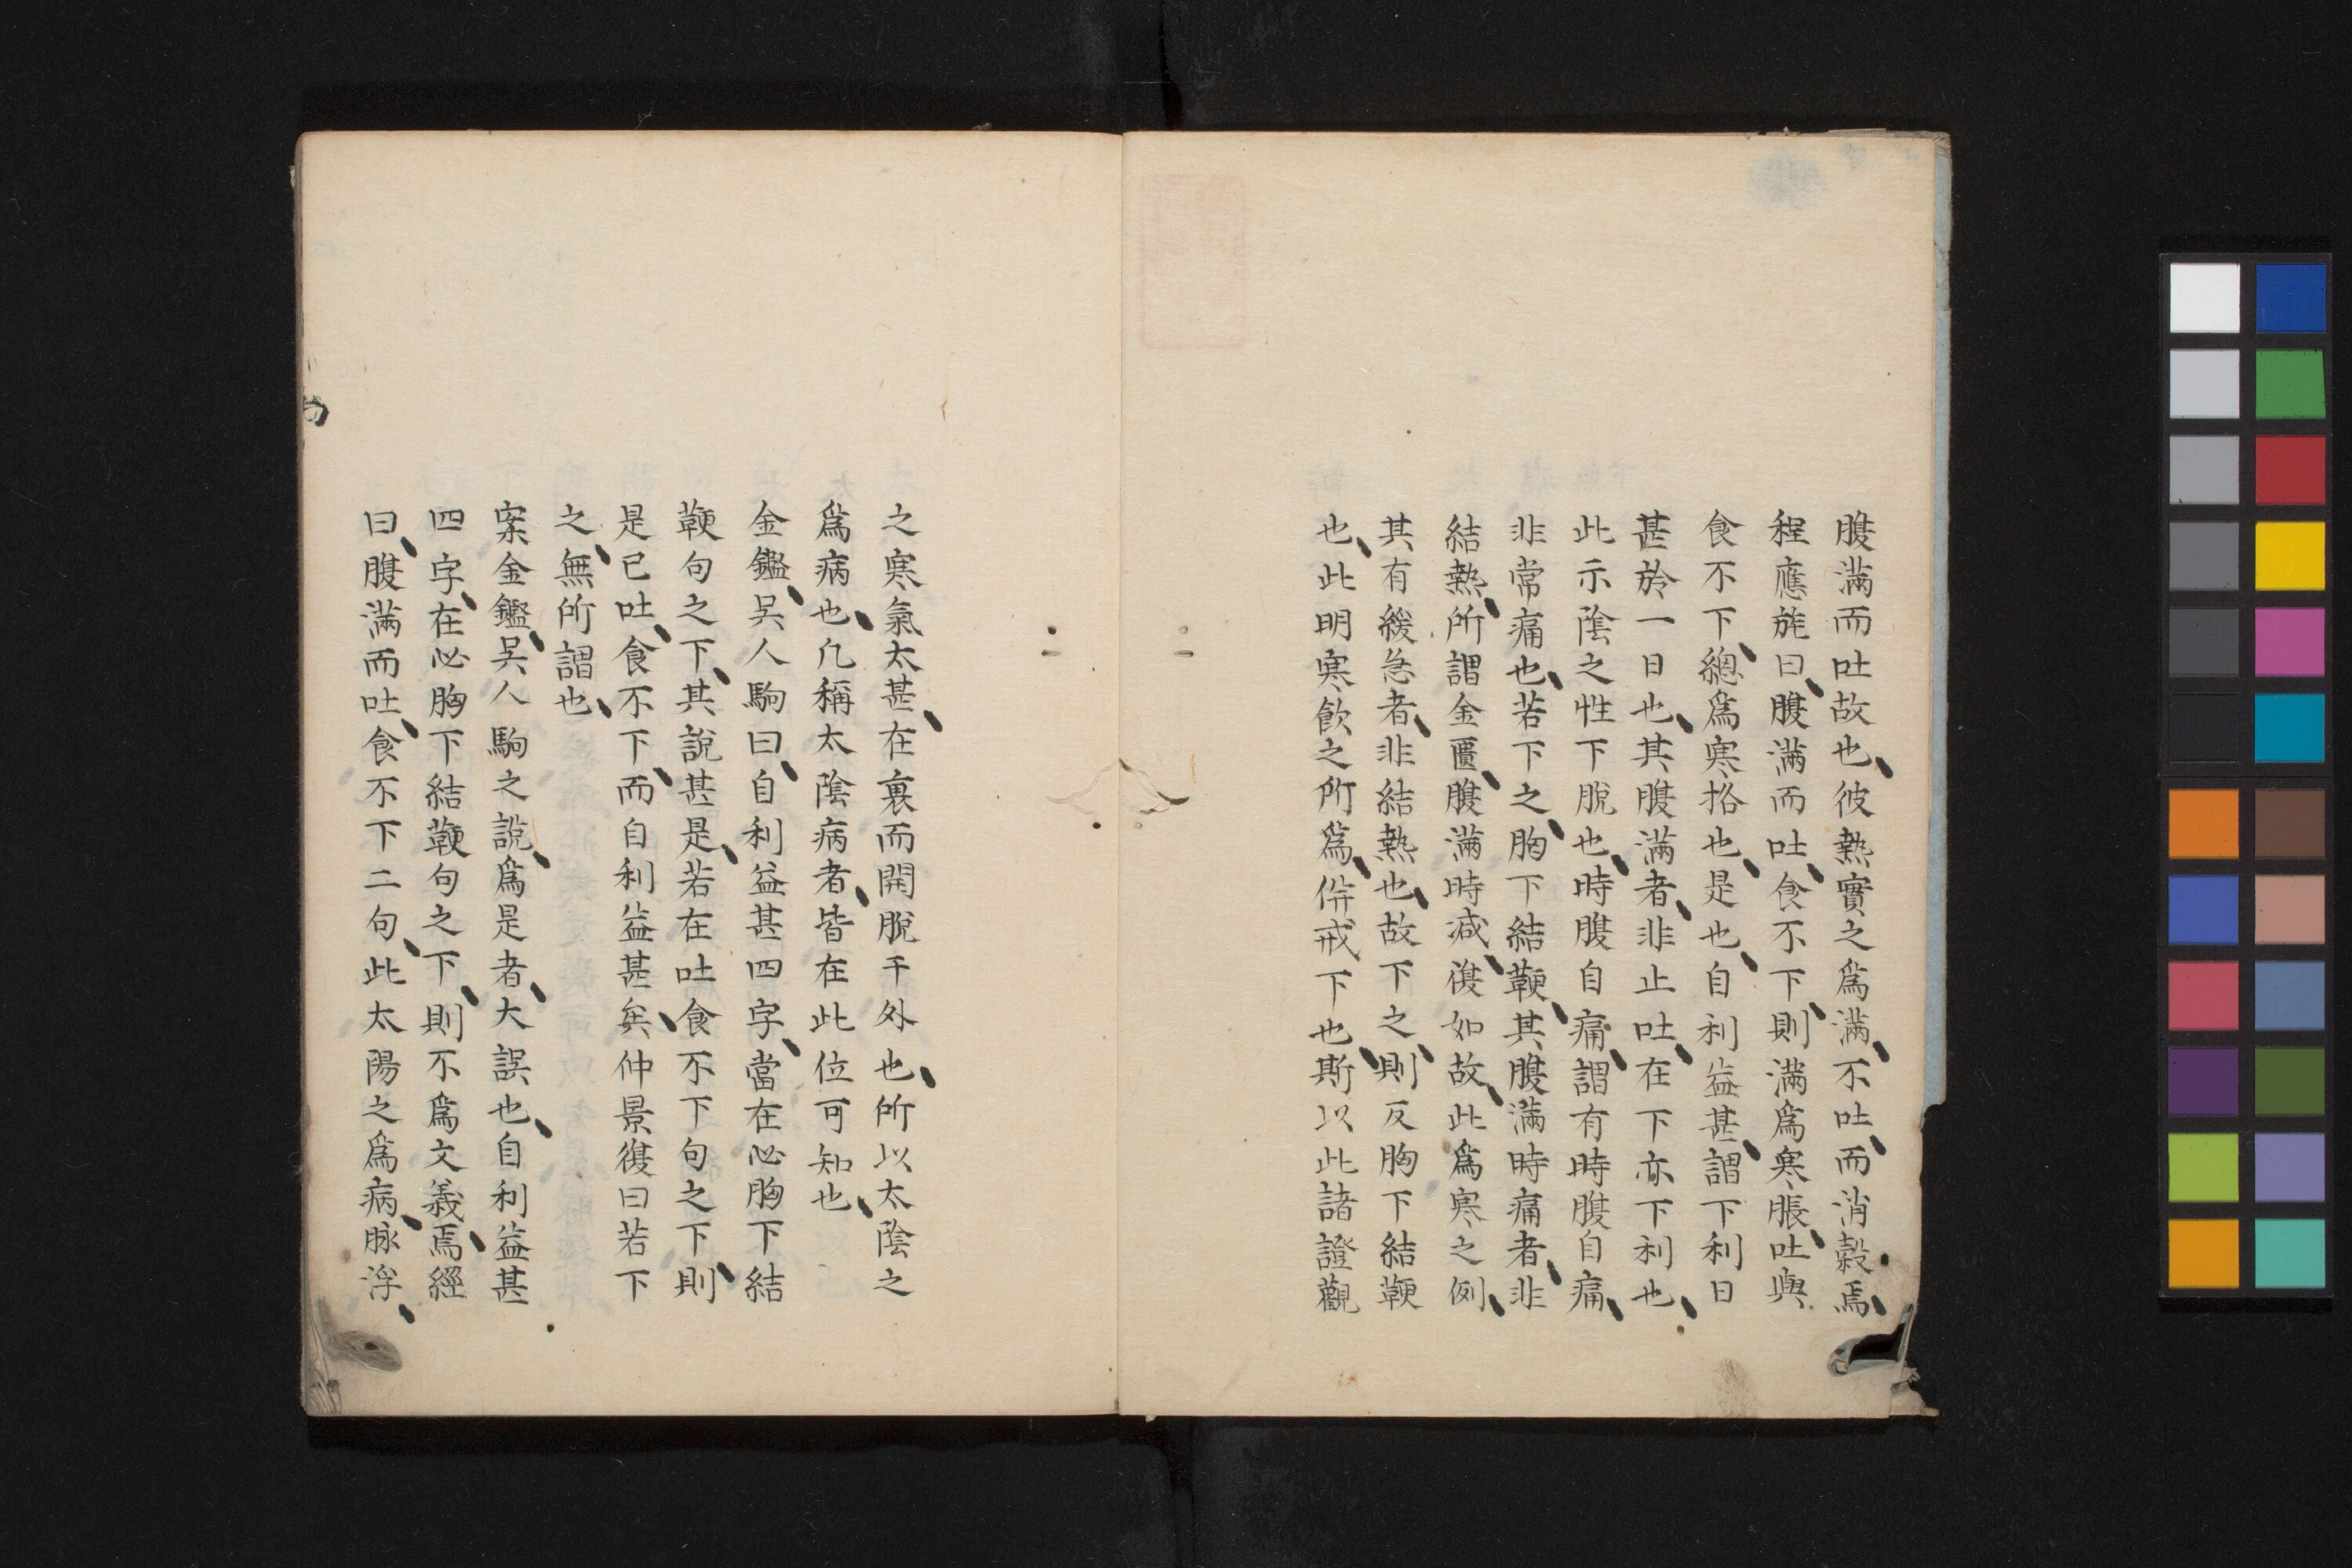 腹滿而吐故也彼熱實之爲滿不吐而消穀焉
程應旄曰腹滿而吐食不下則滿爲寒脹吐與
食不下總爲寒挌也是也自利益甚謂下利日
甚於一日也其腹滿者非止吐在下亦下利也
此示陰之性下脫也時腹自痛謂有時腹自痛
非常痛也若下之胸下結鞕其腹滿時痛者非
結熱所謂金匱腹滿時減復如故此爲寒之例
其有緩急者非結熱也故下之則反胸下結鞕
也此明寒飲之所爲倂戒下也斯以此諸證觀
之寒氣太甚在裏而開脫于外也所以太陰之
爲病也凡稱太陰病者皆在此位可知也
金鑑吳人駒曰自利益甚四字當在必胸下結
鞕句之下其說甚是若在吐食不下句之下則
是已吐食不下而自利益甚矣仲景復曰若下
之無所謂也
案金鑑吳人駒之說爲是者大誤也自利益甚
四字在必胸下結鞕句之下則不爲文義焉經
曰腹滿而吐食不下二句此太陽之爲病脉浮